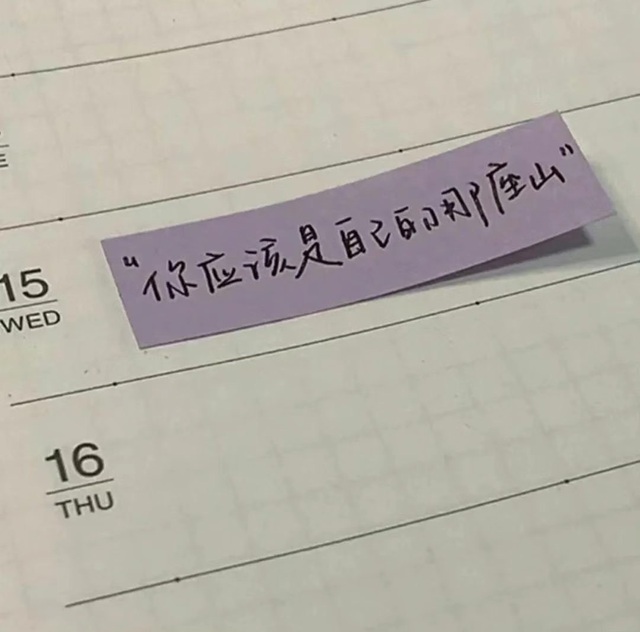 “你应该是自己的那座山”
15
WED
16
THU